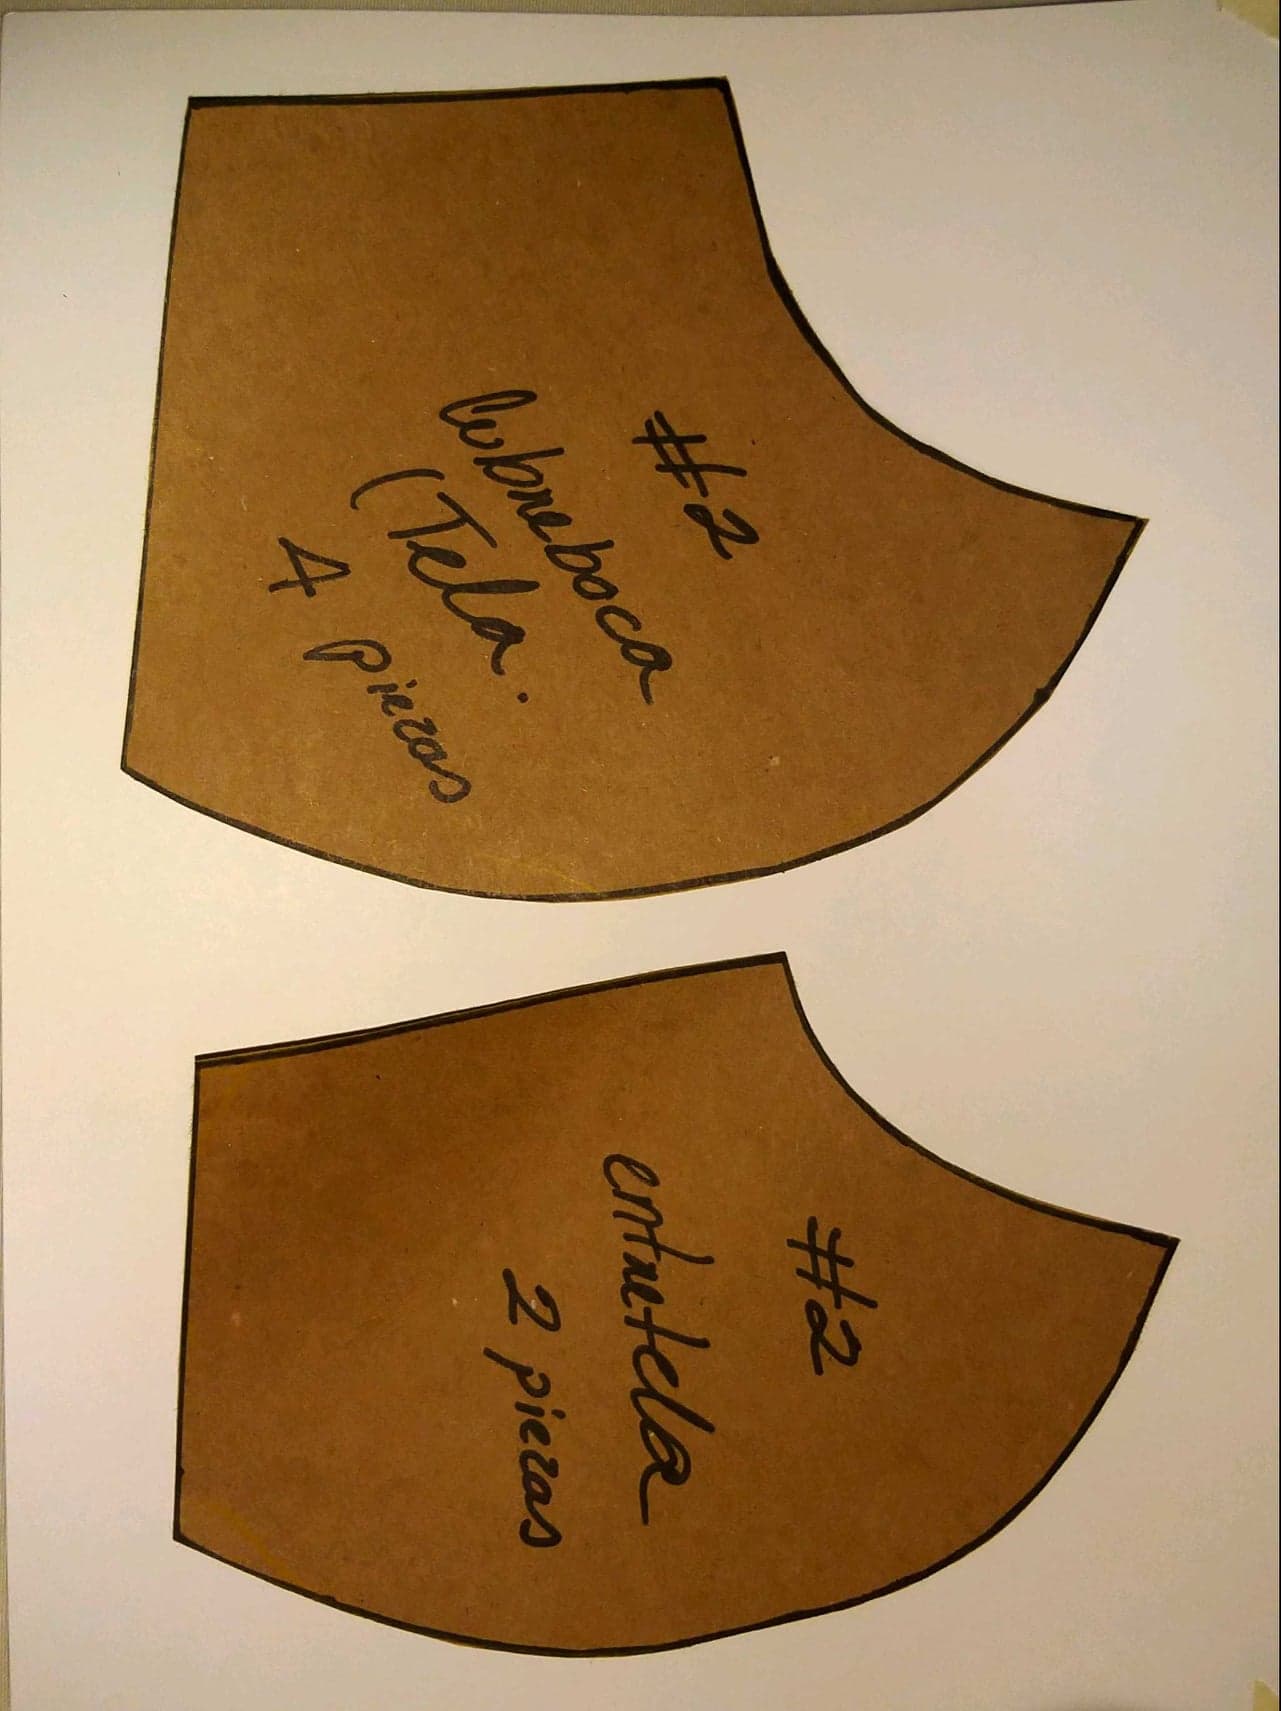 #2
Cubreboca
(Tela.
4 piezas
#2
entretela
2 piezas